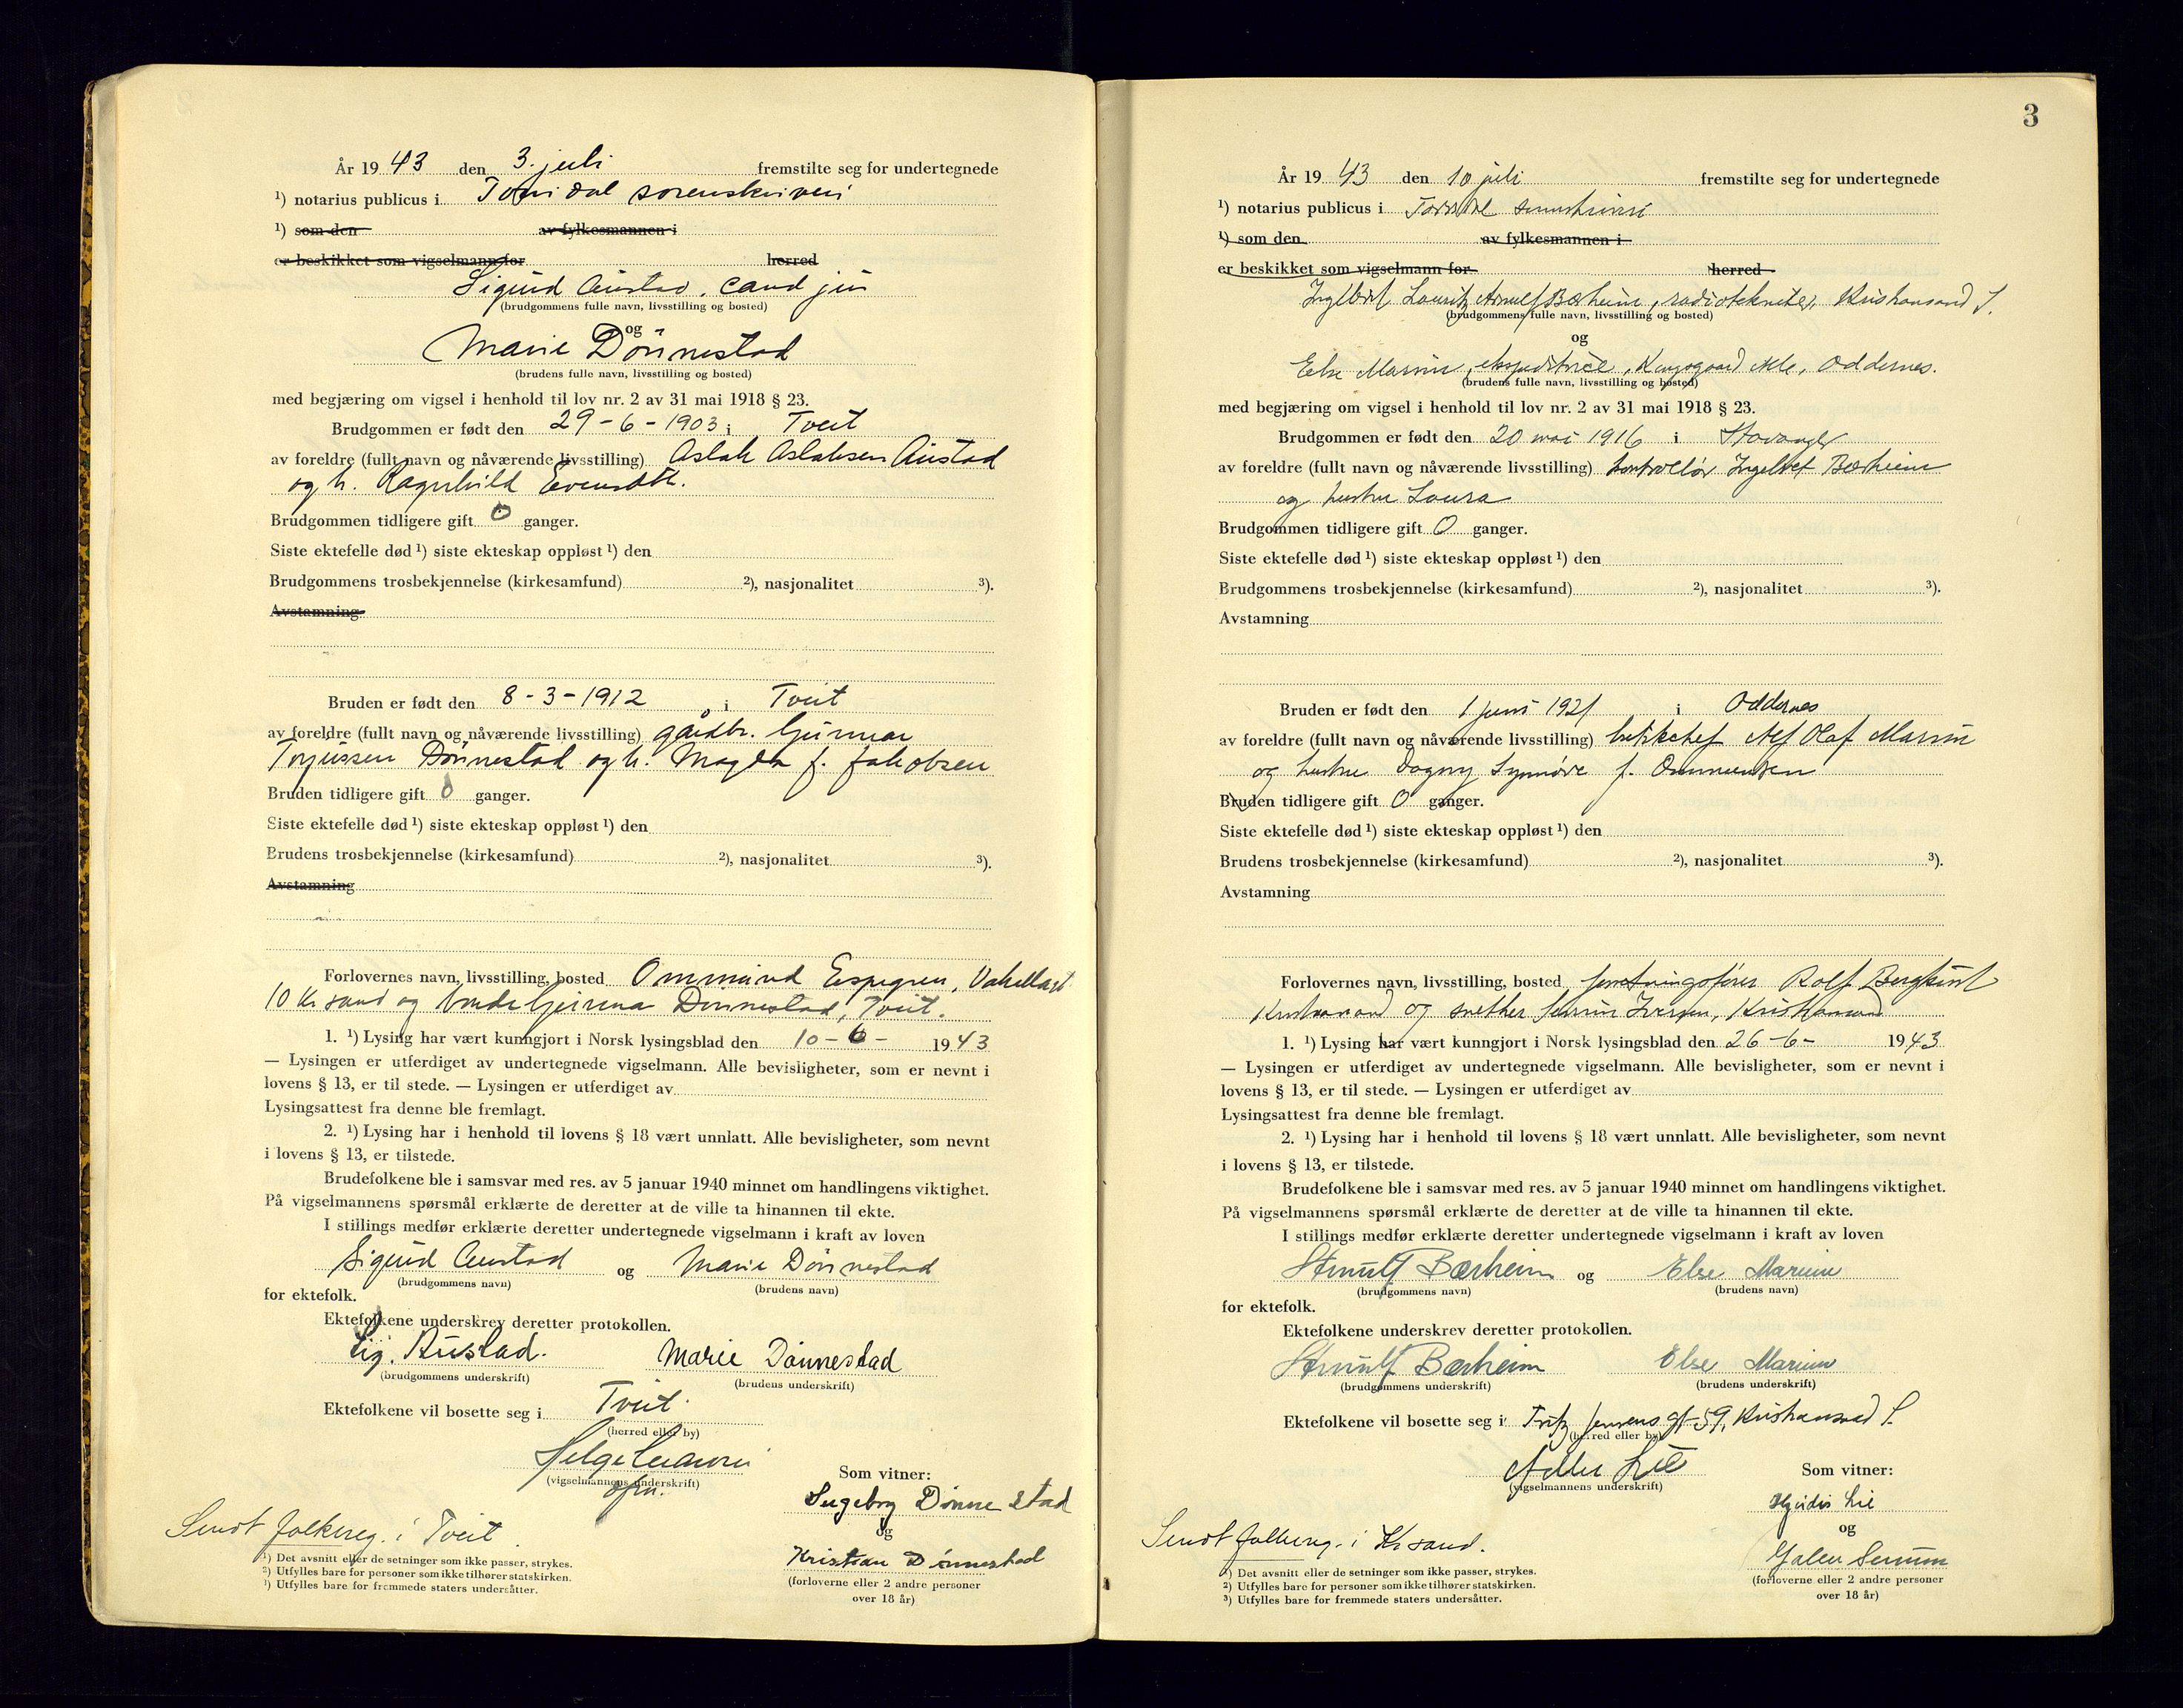 År 1943 den 3. juli fremstilte seg for undertegnede
¹) notarius publicus i Torridal sorenskriveri
¹) som den av fylkesmannen i
er beskikket som vigselmann for herred
Sigurd Austad, cand jur
(brudgommens fulle navn, livsstilling og bosted)
og
Marie Dönnestad
(brudens fulle navn, livsstilling og bosted)
med begjæring om vigsel i henhold til lov nr. 2 av 31 mai 1918 § 23.
Brudgommen er født den 29-6-1903 i Tveit
av foreldre (fullt navn og nåværende livsstilling) Aslak Aslaksen Austad
og h. Ragnhild Evensdtr.
Brudgommen tidligere gift 0 ganger.
Siste ektefelle død ¹) siste ekteskap oppløst ¹) den
Brudgommens trosbekjennelse (kirkesamfund) ²), nasjonalitet ³).
Avstamning
Bruden er født den 8-3-1912 i Tveit
av foreldre (fullt navn og nåværende livsstilling) gårdbr. Gunnar
Torjussen Dønnestad og h. Magda f. Jakobsen
Bruden tidligere gift 0 ganger.
Siste ektefelle død ¹) siste ekteskap oppløst ¹) den
Brudens trosbekjennelse (kirkesamfund) ²), nasjonalitet ³).
Avstamning
Forlovernes navn, livsstilling, bosted Ommund Espegren,
10 Kr sand og Dønnestad, Tveit.
1. ¹) Lysing har vært kunngjort i Norsk lysingsblad den 10-6- 1943
— Lysingen er utferdiget av undertegnede vigselmann. Alle bevisligheter, som er nevnt i
lovens § 13, er til stede. — Lysingen er utferdiget av
Lysingsattest fra denne ble fremlagt.
2. ¹) Lysing har i henhold til lovens § 18 vært unnlatt. Alle bevisligheter, som nevnt
i lovens § 13, er tilstede.
Brudefolkene ble i samsvar med res. av 5 januar 1940 minnet om handlingens viktighet.
På vigselmannens spørsmål erklærte de deretter at de ville ta hinannen til ekte.
I stillings medfør erklærte deretter undertegnede vigselmann i kraft av loven
Sigurd Austad og Marie Dönnestad
(brudgommens navn) (brudens navn)
for ektefolk.
Ektefolkene underskrev deretter protokollen.
Sig. Austad. Marie Dønnestad
(brudgommens underskrift) (brudens underskrift)
Ektefolkene vil bosette seg i Tveit.
(herred eller by)
Helge
(vigselmannens underskrift)
Som vitner:
Ingeborg Dønnestad
og
Kristian Dønnestad
(forloverne eller 2 andre personer
over 18 år)
Sendt folkereg. i Tveit.
¹) Det avsnitt eller de setninger som ikke passer, strykes.
²) Utfylles bare for personer som ikke tilhører statskirken.
³) Utfylles bare for fremmede staters undersåtter.
3
År 1943 den 10 juli fremstilte seg for undertegnede
¹) notarius publicus i Torridal sorenskriveri
¹) som den av fylkesmannen i
er beskikket som vigselmann for herred
Ingelbret Lauritz Arnulf Bærheim, radiotekniker, Kristiansand S.
(brudgommens fulle navn, livsstilling og bosted)
og
Else Marum, ekspeditrice, Kongsgaard Alle, Oddernes.
(brudens fulle navn, livsstilling og bosted)
med begjæring om vigsel i henhold til lov nr. 2 av 31 mai 1918 § 23.
Brudgommen er født den 20 mai 1916 i Stavanger
av foreldre (fullt navn og nåværende livsstilling) kontrollør Ingelbret Bærheim
og hustru Laura
Brudgommen tidligere gift 0 ganger.
Siste ektefelle død ¹) siste ekteskap oppløst ¹) den
Brudgommens trosbekjennelse (kirkesamfund) ²), nasjonalitet ³).
Avstamning
Bruden er født den 1 juni 1921 i Oddernes
av foreldre (fullt navn og nåværende livsstilling) butikksjef Alf Olaf Marum
og hustru Dagny Synnøve f. Ommundsen
Bruden tidligere gift 0 ganger.
Siste ektefelle død ¹) siste ekteskap oppløst ¹) den
Brudens trosbekjennelse (kirkesamfund) ²), nasjonalitet ³).
Avstamning
Forlovernes navn, livsstilling, bosted forretningsfører Rolf Bergkvist
Kristiansand og Iversen, Kristiansand
1. ¹) Lysing har vært kunngjort i Norsk lysingsblad den 26-6- 1943
— Lysingen er utferdiget av undertegnede vigselmann. Alle bevisligheter, som er nevnt i
lovens § 13, er til stede. — Lysingen er utferdiget av
Lysingsattest fra denne ble fremlagt.
2. ¹) Lysing har i henhold til lovens § 18 vært unnlatt. Alle bevisligheter, som nevnt
i lovens § 13, er tilstede.
Brudefolkene ble i samsvar med res. av 5 januar 1940 minnet om handlingens viktighet.
På vigselmannens spørsmål erklærte de deretter at de ville ta hinannen til ekte.
I stillings medfør erklærte deretter undertegnede vigselmann i kraft av loven
Arnulf Bærheim og Else Marum
(brudgommens navn) (brudens navn)
for ektefolk.
Ektefolkene underskrev deretter protokollen.
Arnulf Bærheim Else Marum
(brudgommens underskrift) (brudens underskrift)
Ektefolkene vil bosette seg i Fritz Jensens gt 59, Kristiansand S.
(herred eller by)
Lie
(vigselmannens underskrift)
Som vitner:
Hjørdis Lie
og
(forloverne eller 2 andre personer
over 18 år)
Sendt folkereg. i Kr.sand.
¹) Det avsnitt eller de setninger som ikke passer, strykes.
²) Utfylles bare for personer som ikke tilhører statskirken.
³) Utfylles bare for fremmede staters undersåtter.